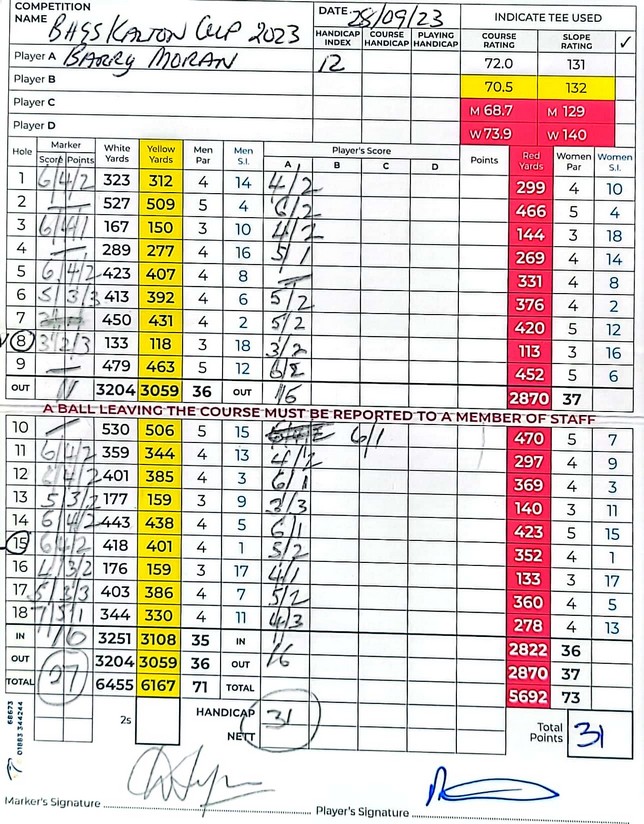 COMPETITION NAME BHGS KALTON CUP 2023 DATE 28/09/23 INDICATE TEE USED
HANDICAP INDEX COURSE HANDICAP PLAYING HANDICAP COURSE RATING SLOPE RATING ✓
Player A BARRY MORAN 12 72.0 131
Player B 70.5 132
Player C M 68.7 M 129
Player D W 73.9 W 140
Hole Marker Score Points White Yards Yellow Yards Men Par Men S.I. Player's Score A B C D Points Red Yards Women Par Women S.I.
1 6/4/2 323 312 4 14 4/2 299 4 10
2 — 527 509 5 4 6/2 466 5 4
3 6/4/1 167 150 3 10 4/2 144 3 18
4 — 289 277 4 16 5/1 269 4 14
5 6/4/2 423 407 4 8 — 331 4 8
6 5/3/3 413 392 4 6 5/2 376 4 2
7 450 431 4 2 5/2 420 5 12
8 3/2/3 133 118 3 18 3/2 113 3 16
9 — 479 463 5 12 6/2 452 5 6
OUT 11 3204 3059 36 OUT 16 2870 37
A BALL LEAVING THE COURSE MUST BE REPORTED TO A MEMBER OF STAFF
10 — 530 506 5 15 6/1 470 5 7
11 6/4/2 359 344 4 13 4/2 297 4 9
12 6/4/2 401 385 4 3 6/1 369 4 3
13 5/3/2 177 159 3 9 3/3 140 3 11
14 6/4/2 443 438 4 5 6/1 423 5 15
15 6/4/2 418 401 4 1 5/2 352 4 1
16 4/3/2 176 159 3 17 4/1 133 3 17
17 5/3/3 403 386 4 7 5/2 360 4 5
18 7/5/1 344 330 4 11 4/3 278 4 13
IN 16 3251 3108 35 IN 2822 36
OUT 11 3204 3059 36 OUT 16 2870 37
TOTAL 27 6455 6167 71 TOTAL 5692 73
2s HANDICAP 31 Total Points 31
NETT
68673
01883 344244
Marker's Signature Player's Signature